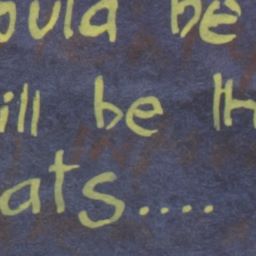 ould be
ill be th
ats....